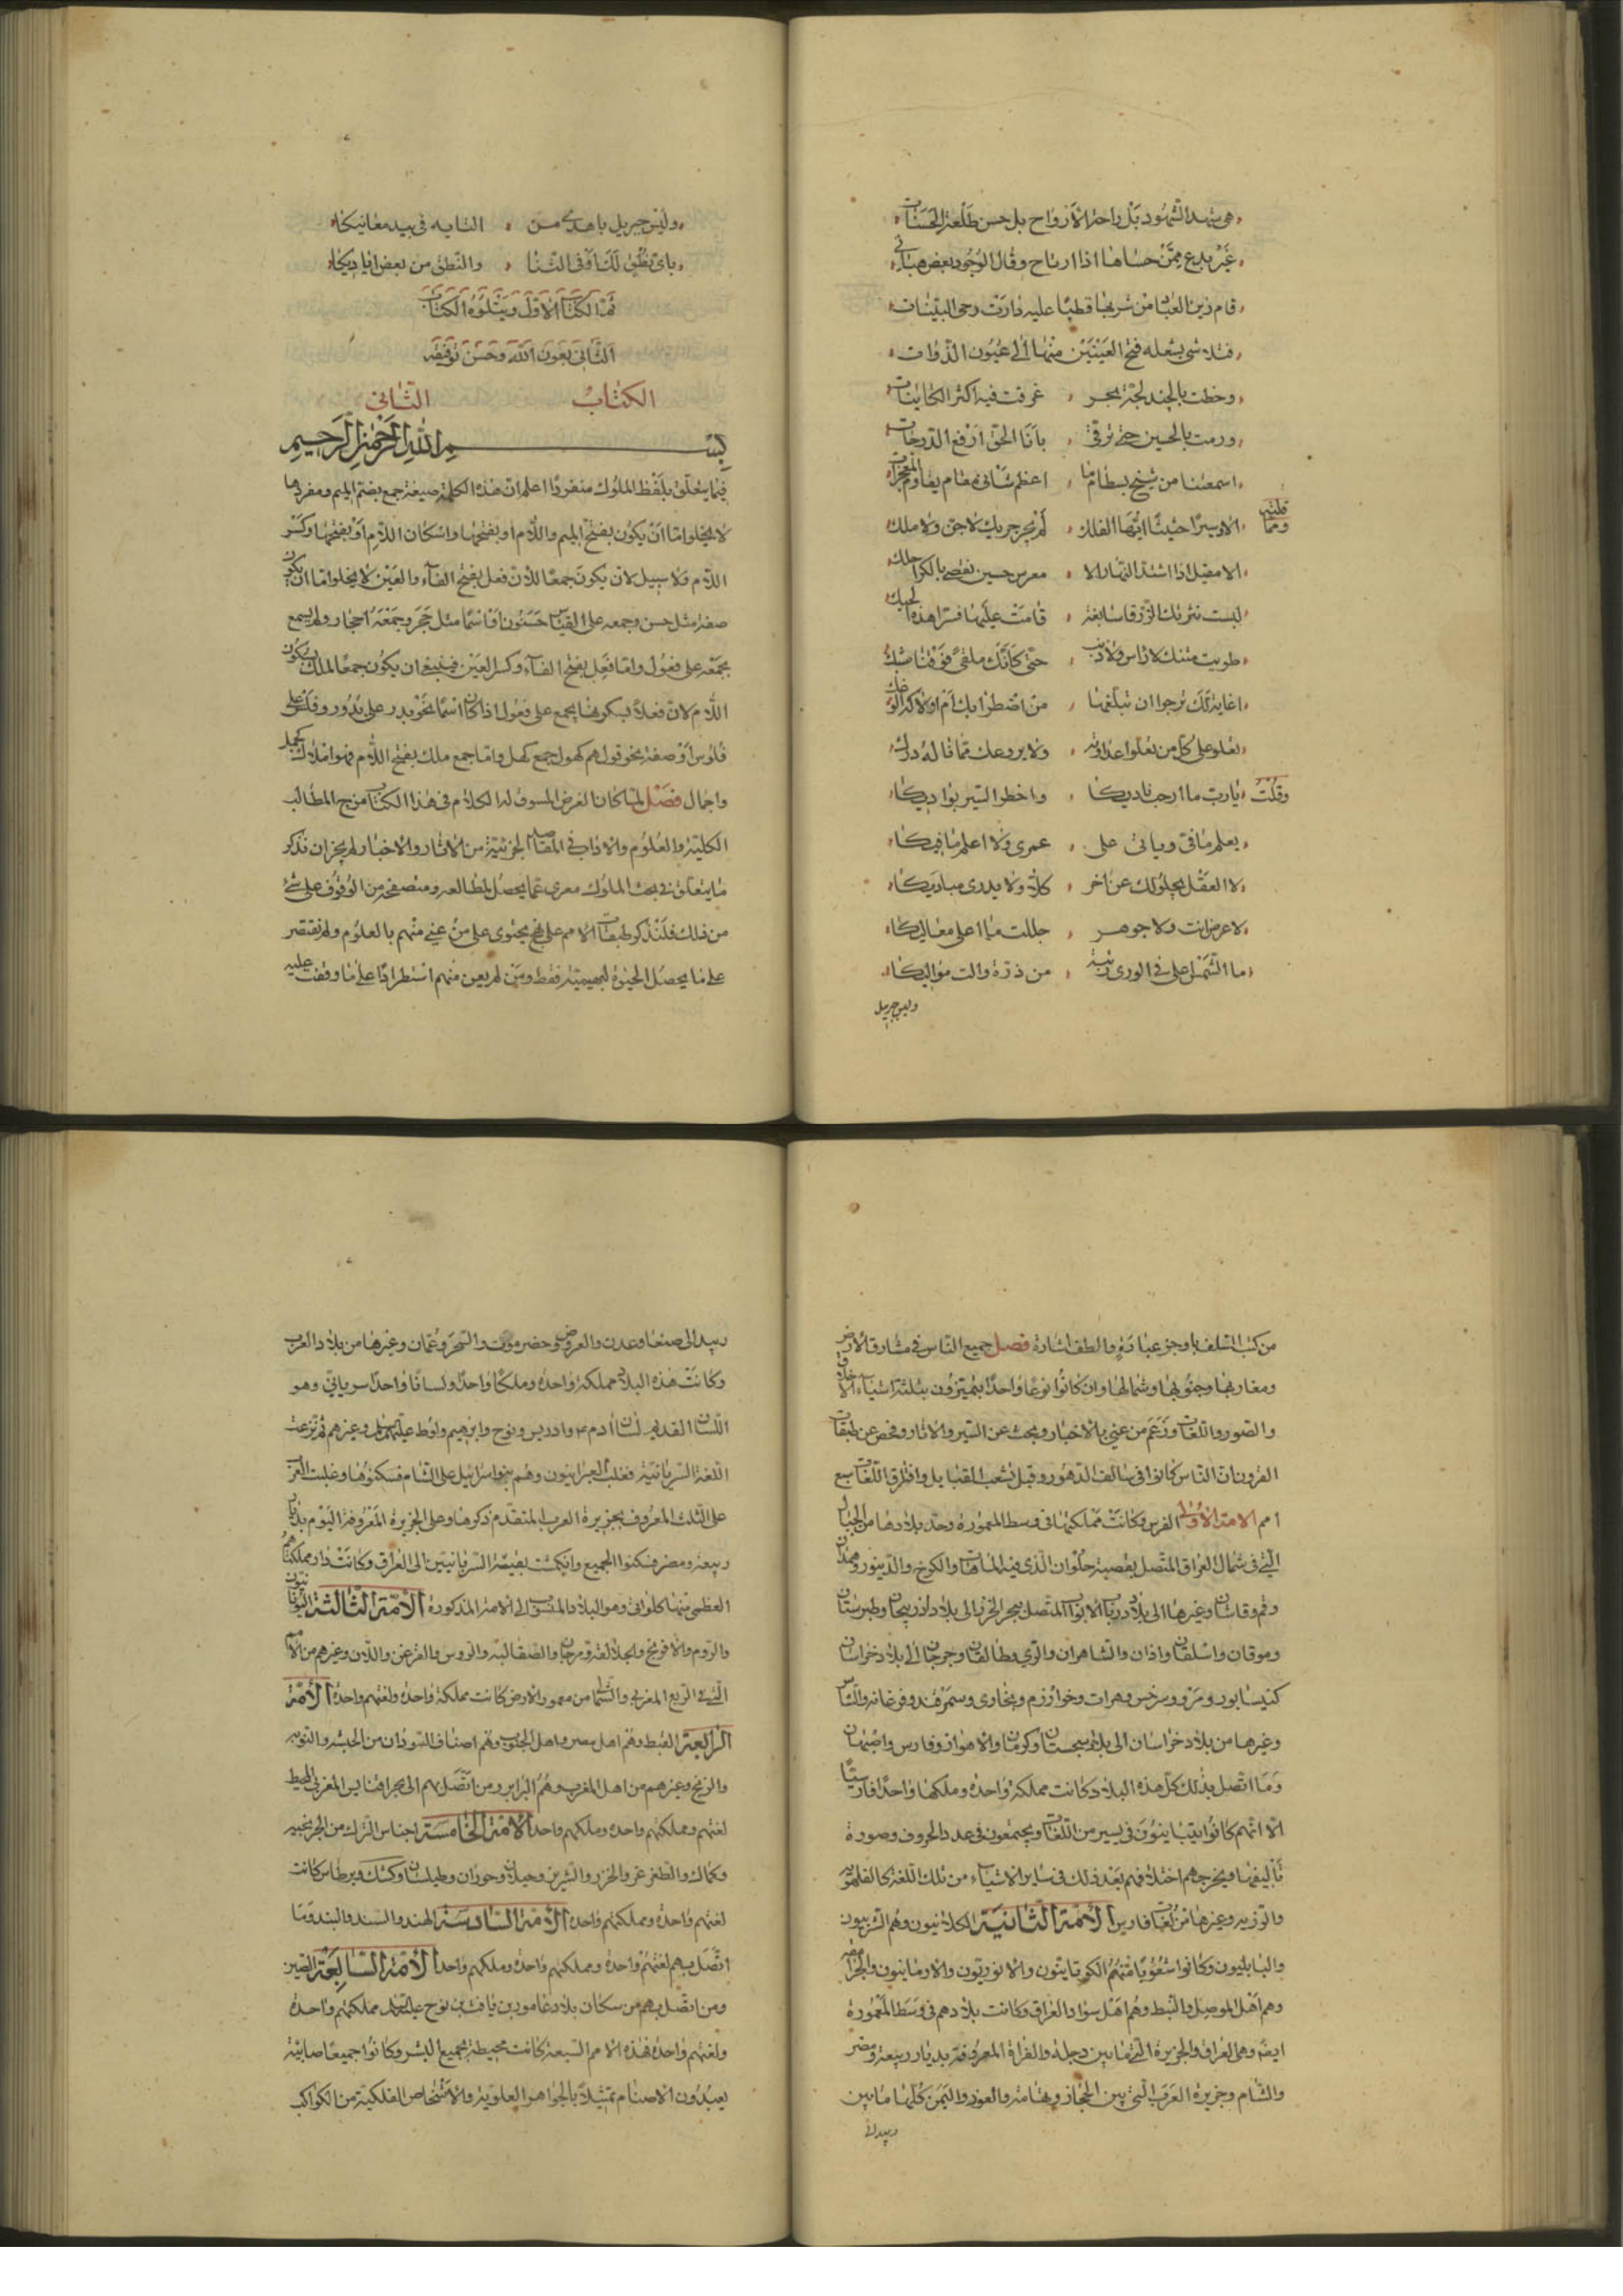 هي شهد الشهود بل راحة الارواح بل حسن طلعة الحسنات
غير بدع ممن حساها اذا ارتاح وقال الوجود بعض هباتي
قام زين العباد من شربها قطبا عليه دارت رحى البينات
فتلاشى بشعله فتح العينين منها الى عيون الذوات
وخطت بالجنيد لجة بحر غرقت فيه اكثر الكاينات
ورمت بالحسين حتى ترقى بانا الحق ارفع الدرجات
اسمعتنا من شيخ بسطام ما اعظم شاني مقام يقاوم المعجزات
ومما قلته
الا وسيرا حثيثا ايها الفلك لم يجر جريك لا جن ولا ملك
الا مقيل اذا اشتد النهار الا معرس حسين يقضي بالكرا
لبست نثريك الزرقا سابغة قامت عليها فسرا هذه الحبك
طويت متنك لا راس ولا ذنب حتى كانك ملقى فوقنا شبك
اغاية لك ترجوا ان تبلغها من اضطرابك ام اولا كه
تعلو على كل من تعلوا عداوته ولا يروعك مما قاله درك
وقلت يارب ما ارحب ناديكا واخطر السير بواديكا
يعلم ما في وما في على عمري ولا اعلم ما فيكا
لا العقل يجلو لك عن اخر كلا ولا يدري مباديكا
لا عرض انت ولا جوهر جللت ما اعلى معاليكا
ما الشمس اعلى في الورى رتبة من ذرة والت مواليكا
وليس جبريل
وليس جبريل باهدى من التايه في بيد معانيكا
باي نطق لك اوفي الثنا والنطق من بعض اياديكا
تم الكتاب الاول ويتلوه الكتاب
الثاني بعون الله وحسن توفيقه
الكتاب الثاني
بسم الله الرحمن الرحيم
فيما يتعلق بلفظ الملوك منفردا اعلم ان هذه الكلمة صيغة جمع بضم الميم ومفردها
لا يخلو اما ان يكون بفتح الميم واللام او بفتحها واسكان اللام او بفتحها وكسر
اللام ولا سبيل لان يكون جمعا للان فعل بفتح الفاء والعين لا يخلو اما ان يكون
صفة مثل حسن وجمعه على القياس حسنون او اسما مثل حجر وجمعه احجار ولم يسمع
بجمعه على فعول واما فعل بفتح الفاء وكسر العين فينبغي ان يكون جمعا لملك بسكون
اللام لان فعلا بسكونها يجمع على فعول اذا كان اسما نحو بدر على بدور وفلس على
فلوس او صفة نحو قولهم كهول جمع كهل واما جمع ملك بفتح اللام فهو املاك كجمل
واجمال فصل لما كان الغرض المسوق له الكلام في هذا الكتاب مزج المطالب
الكلية والعلوم والاداب في المقاصد الجزئية من الاثار والاخبار لم يجز ان نذكر
ما يتعلق في بحث الملوك معرى عما يحصل لمطالعه ومتصفحه من الوقوف على شئ
من ذلك فلنذكر طبقات الامم على نهج يحتوى على من عني منهم بالعلوم ولم يقتصر
على ما يحصل الحيوة البهيمية فقط ومن لم يعن منهم استطرادا على ما وقفت عليه
من كتب السلف باوجز عبارة والطف اشارة فصل جميع الناس في مشارق الارض
ومغاربها وجنوبها وشمالها وان كانوا نوعا واحدا يتميزون بثلثة اشياء الاخلاق
والصور واللغات وزعم من عني بالاخبار وبحث عن السير والاثار وفحص عن طبقات
القرون ان الناس كانوا في سالف الدهور وقبل تشعب القبايل وافتراق اللغات سبع
امم الامة الاولى الفرس وكانت مملكتها في وسط المعمورة وحد بلادها من الجبال
التي في شمال العراق المتصل بقصبة حلوان الذي فيه الماهات والكرخ والدينور وهمدان
وقم وقاشان وغيرها الى بلاد درباب الابواب المتصل ببحر الخزر الى بلاد اذربيجان وطبرستان
وموقان واسلقان واذان والشاهران والري وطالقان وجرجان الى بلاد خراسان
كنيسابور ومرو وسرخس وهرات وخوارزم وبخارى وسمرقند وفرغانه والشاش
وغيرها من بلاد خراسان الى بلاد سجستان وكرمان والاهواز وفارس واصبهان
وما اتصل بذلك كل هذه البلاد كانت مملكة واحدة وملكها واحدا فارسيا
الا انهم كانوا يتباينون في يسير من اللغات ويجتمعون في عدد الحروف وصورة
تاليفها ويخرجهم اختلافهم بعد ذلك في ساير الاشياء من تلك اللغة كالفلهوية
والوزيه وغيرها من لغات فارس الامة الثانية الكلدانيون وهم السريون
والبابليون وكانوا شعوبا منهم الكوثايثون والاثوريون والارمانيون والجرامقه
وهم اهل الموصل والنبط وهم اهل سواد العراق وكانت بلادهم في وسط المعمورة
ايضا وهي العراق والجزيرة التي ما بين دجلة والفراة المعروفة بديار ربيعة ومضر
والشام وجزيرة العرب التي بين الحجاز وتهامة والغور واليمن كلها ما بين
زبيد الى
زبيد الى صنعا وعدن والعروض وحضرموت والشحر وعمان وغيرها من بلاد العرب
وكانت هذه البلاد مملكة واحدة وملكا واحدا ولسانا واحدا سرياني وهو
اللسان القديم لسان ادم وادريس ونوح وابرهيم ولوط عليهم السلم وغيرهم ثم تفرعت
اللغة السريانية فغلب العبرانيون وهم بنو اسرائيل على الشام فسكنوها وغلبت العرب
على الثلث المعروف بجزيرة العرب المتقدم ذكرها وعلى الجزيرة المعروفة اليوم بديار
ربيعة ومضر فسكنوا الجميع وانكمشت بقية السريانيين الى العراق وكانت دار مملكتهم
العظمى منها كلواذى وهو البلاد المنسوب الى الامة المذكورة الامة الثالثة اليونانيون
والروم والافرنج والجلالقة وبرجان والصقالبة والروس والبرغز واللان وغيرهم من الامم
التي في الربع المغربي والشمال من معمور الارض كانت مملكة واحدة ولغتهم واحدة الامة
الرابعة القبط وهم اهل مصر واهل الجنوب وهم اصناف السودان من الحبشه والنوبه
والزنج وغيرهم من اهل المغرب وهم البرابر ومن اتصل بهم الى بحر اقنايس المغربي المحيط
لغتهم ومملكتهم واحدة وملكهم واحد الامة الخامسة اجناس الترك من الخرخيه
وكماك والطغرغر والخزر والسرير وجيلان وخوزان وطيلسان وكشك وبرطاس كانت
لغتهم واحدة ومملكتهم واحدة الامة السادسة الهند والسند والبند وما
اتصل بهم لغتهم واحدة ومملكتهم واحدة وملكهم واحد الامة السابعة الصين
ومن اتصل بهم من سكان بلاد عامور بن يافث بن نوح عليه السلم مملكتهم واحدة
ولغتهم واحدة فهذه الامم السبعة كانت محيطة بجميع البشر وكانوا جميعا صابئة
يعبدون الاصنام تمثيلا بالجواهر العلوية والاشخاص الفلكية من الكواكب